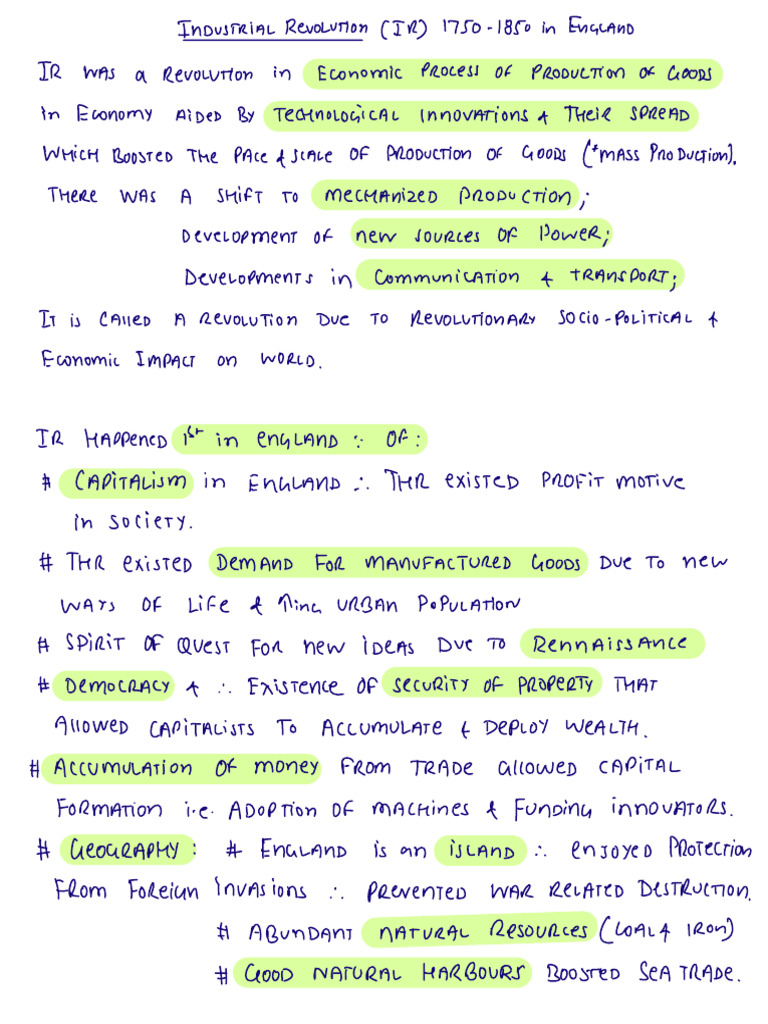 INDUSTRIAL REVOLUTION (IR) 1750-1850 in ENGLAND
IR WAS a REVOLUTION in ECONOMIC PROCESS OF PRODUCTION OF GOODS
in ECONOMY AIDED BY TECHNOLOGICAL INNOVATIONS & THEIR SPREAD
WHICH BOOSTED THE PACE & SCALE OF PRODUCTION OF GOODS (*MASS PRODUCTION).
THERE WAS A SHIFT TO MECHANIZED PRODUCTION;
DEVELOPMENT OF NEW SOURCES OF POWER;
DEVELOPMENTS in COMMUNICATION & TRANSPORT;
IT iS CALLED A REVOLUTION DUE TO REVOLUTIONARY SOCIO-POLITICAL &
ECONOMIC IMPACT ON WORLD.
IR HAPPENED 1st in ENGLAND ∵ OF:
# CAPITALISM in ENGLAND ∴ THR EXISTED PROFIT MOTIVE
in SOCIETY.
# THR EXISTED DEMAND FOR MANUFACTURED GOODS DUE TO NEW
WAYS OF LIFE & ↑ing URBAN POPULATION
# SPIRIT OF QUEST FOR NEW IDEAS DUE TO RENNAISSANCE
# DEMOCRACY & ∴ EXISTENCE OF SECURITY OF PROPERTY THAT
ALLOWED CAPITALISTS TO ACCUMULATE & DEPLOY WEALTH.
# ACCUMULATION OF MONEY FROM TRADE ALLOWED CAPITAL
FORMATION i.e. ADOPTION OF MACHINES & FUNDING INNOVATORS.
# GEOGRAPHY: # ENGLAND is an ISLAND ∴ ENJOYED PROTECTION
FROM FOREIGN INVASIONS ∴ PREVENTED WAR RELATED DESTRUCTION.
# ABUNDANT NATURAL RESOURCES (COAL & IRON)
# GOOD NATURAL HARBOURS BOOSTED SEA TRADE.